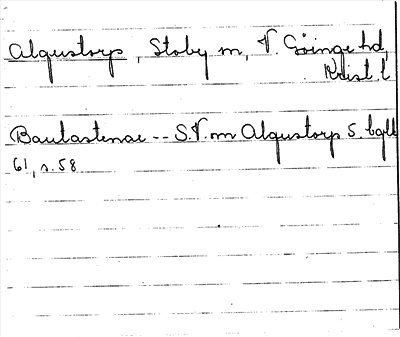 Algustorp, Stoby sn, V. Göinge hd
Krist. l
Bautastenar -- S.V. om Algustorp S. bgll
61, s. 58